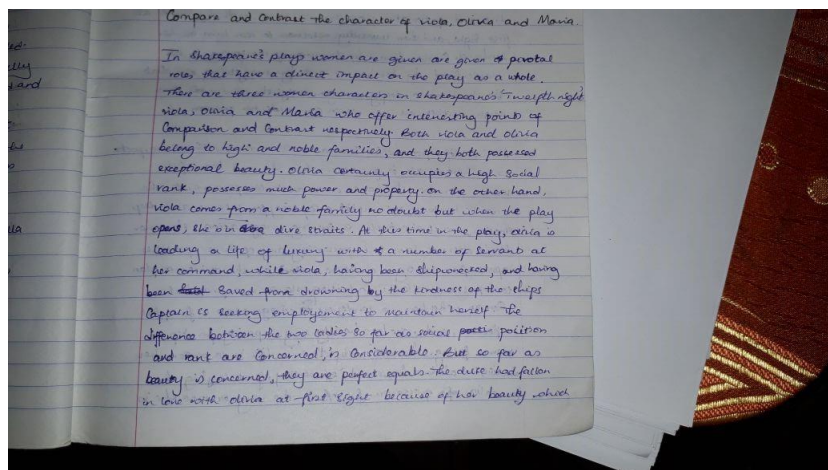 Compare and Contrast the character of viola, Olivia and Maria.
In Shakespeare's plays women are given are given pivotal
roles that have a direct impact on the play as a whole.
There are three women characters in Shakespeare's 'Twelfth night'
viola, Olivia and Maria who offer interesting points of
Comparison and Contrast respectively Both viola and olivia
belong to high and noble families, and they both possessed
exceptional beauty. Olivia certainly occupies a high social
rank, possesses much power and property. on the other hand,
viola comes from a noble family no doubt but when the play
opens, she is in dire straits. At this time in the play, olivia is
leading a life of luxury with a number of servant at
her command, while viola, having been shipwrecked, and having
been saved from drowning by the kindness of the ships
Captain is seeking employement to maintain herself The
difference between the two ladies so far as social position
and rank are Concerned, is Considerable. But so far as
beauty is concerned, they are perfect equals. The duke had fallen
in love with olivia at first sight because of her beauty which
ed.
and